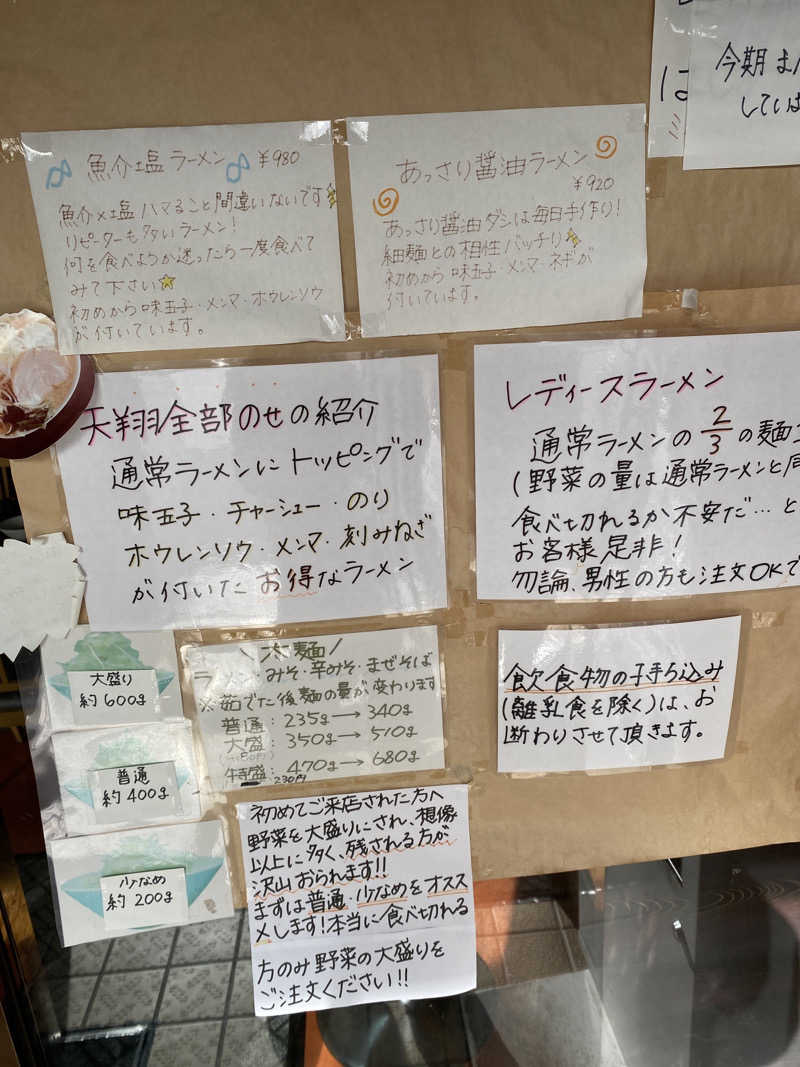 は
今期ま
してい
魚介塩ラーメン ¥980
魚介×塩ハマること間違いないです
リピーターも多いラーメン!
何を食べようか迷ったら一度食べて
みて下さい
初めから味玉子・メンマ・ホウレンソウ
が付いています。
あっさり醤油ラーメン
¥920
あっさり醤油ダシは毎日手作り!
細麺との相性バッチリ
初めから味玉子・メンマ・ネギが
付いています。
天翔全部のせの紹介
通常ラーメンにトッピングで
味玉子・チャーシュー・のり
ホウレンソウ・メンマ・刻みねぎ
が付いたお得なラーメン
レディースラーメン
通常ラーメンの2/3の麺
(野菜の量は通常ラーメンと同
食べ切れるか不安だ…と
お客様是非!
勿論、男性の方も注文OKで
大盛り
約600g
普通
約400g
少なめ
約200g
\太麺/
みそ・辛みそ・まぜそば
※茹でた後麺の量が変わります
普通:235g→340g
大盛:350g→510g
特盛:470g→680g
230円
飲食物の持ち込み
(離乳食を除く)は、お
断わりさせて頂きます。
初めてご来店された方へ
野菜を大盛りにされ、想像
以上に多く、残される方が
沢山おられます!!
まずは普通・少なめをオスス
メします!本当に食べ切れる
方のみ野菜の大盛りを
ご注文ください!!